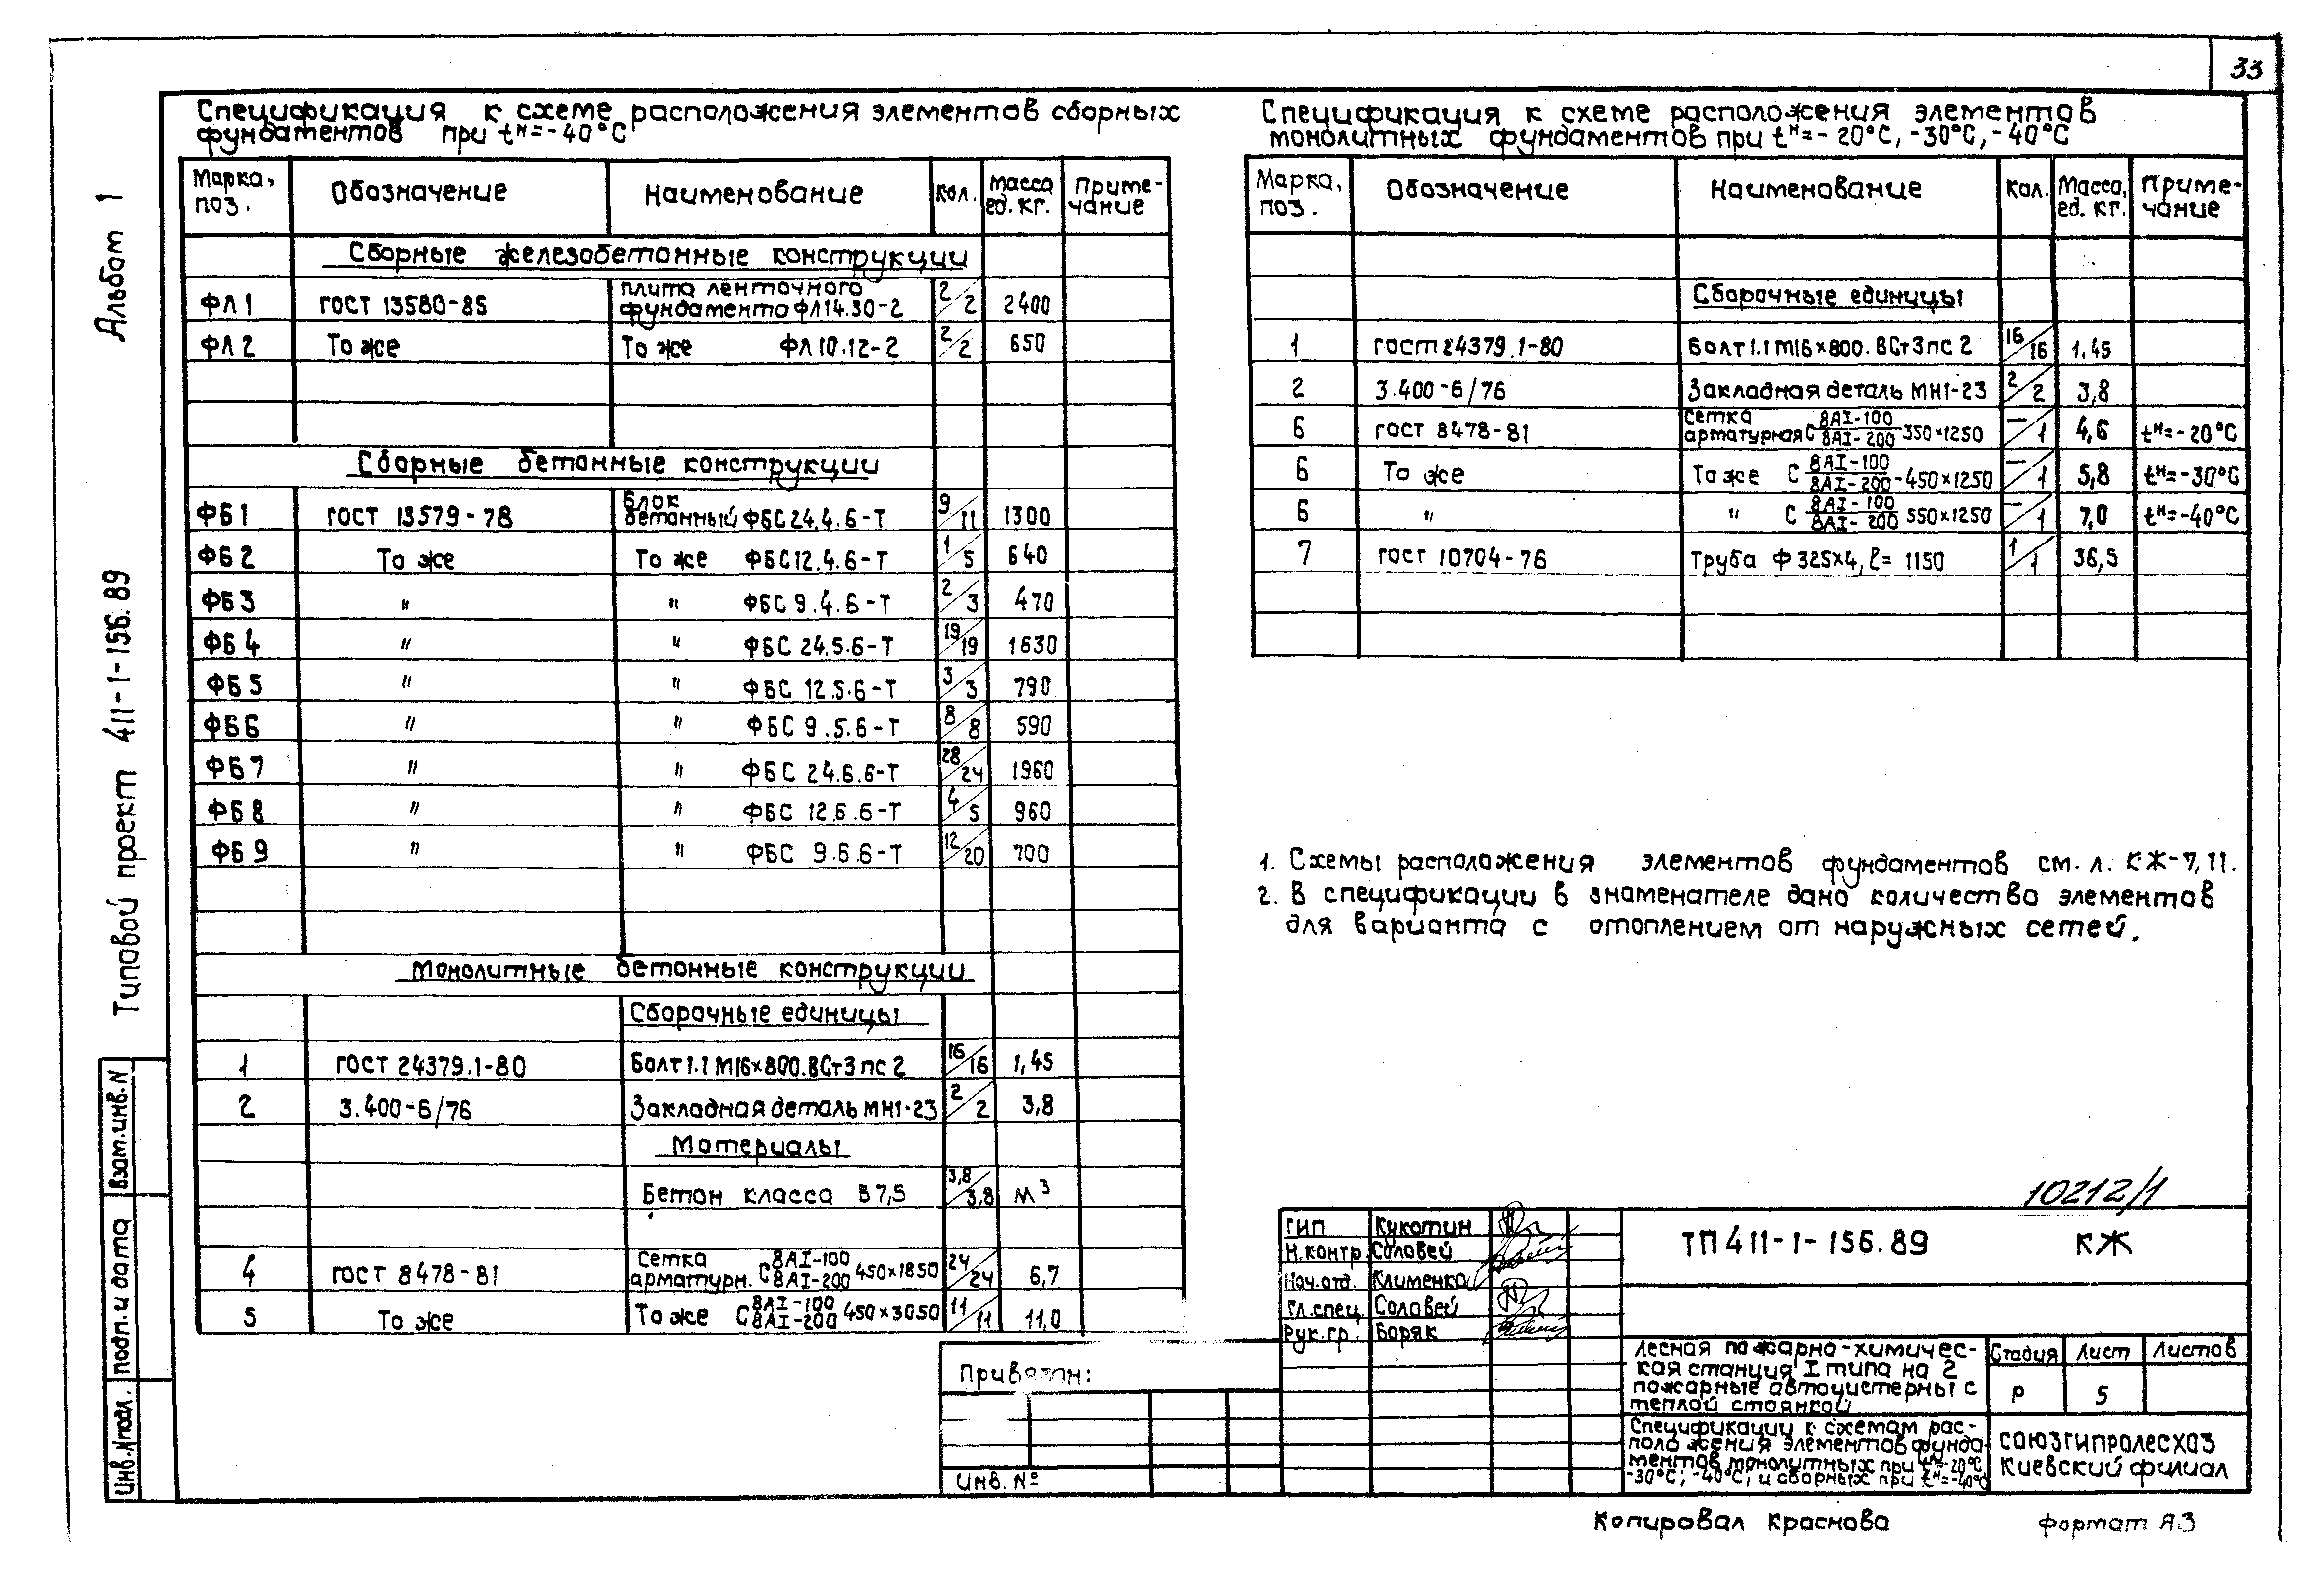 33
Альбом 1
Типовой проект 411-1-156.89
Спецификация к схеме расположения элементов сборных
фундаментов при tн=-40°С
Марка, поз. Обозначение Наименование Кол. Масса ед. кг. Приме-чание
Сборные железобетонные конструкции
ФЛ1 ГОСТ 13580-85 Плита ленточного фундамента ФЛ14.30-2 2/2 2400
ФЛ2 То же То же ФЛ10.12-2 2/2 650
Сборные бетонные конструкции
ФБ1 ГОСТ 13579-78 Блок бетонный ФБС24.4.6-Т 9/11 1300
ФБ2 То же То же ФБС12.4.6-Т 1/5 640
ФБ3 " " ФБС 9.4.6-Т 2/3 470
ФБ4 " " ФБС 24.5.6-Т 19/19 1630
ФБ5 " " ФБС 12.5.6-Т 3/3 790
ФБ6 " " ФБС 9.5.6-Т 8/8 590
ФБ7 " " ФБС 24.6.6-Т 28/24 1960
ФБ8 " " ФБС 12.6.6-Т 4/5 960
ФБ9 " " ФБС 9.6.6-Т 12/20 700
Монолитные бетонные конструкции
Сборочные единицы
1 ГОСТ 24379.1-80 Болт 1.1 М16×800.ВСт3пс2 16/16 1,45
2 3.400-6/76 Закладная деталь МН1-23 2/2 3,8
Материалы
Бетон класса В7,5 3,8/3,8 м³
4 ГОСТ 8478-81 Сетка арматурн. С 8АI-100/8АI-200 450×1850 24/24 6,7
5 То же То же С 8АI-100/8АI-200 450×3050 11/11 11,0
Спецификация к схеме расположения элементов
монолитных фундаментов при tн=-20°С, -30°С, -40°С
Марка, поз. Обозначение Наименование Кол. Масса, ед. кг. Приме-чание
Сборочные единицы
1 ГОСТ 24379.1-80 Болт 1.1 М16×800.ВСт3пс2 16/16 1,45
2 3.400-6/76 Закладная деталь МН1-23 2/2 3,8
6 ГОСТ 8478-81 Сетка арматурная С 8АI-100/8АI-200 350×1250 —/1 4,6 tн=-20°С
6 То же То же С 8АI-100/8АI-200-450×1250 —/1 5,8 tн=-30°С
6 " " С 8АI-100/8АI-200 550×1250 —/1 7,0 tн=-40°С
7 ГОСТ 10704-76 Труба Ф325×4, ℓ=1150 1/1 36,5
1. Схемы расположения элементов фундаментов см. л. КЖ-7,11.
2. В спецификации в знаменателе дано количество элементов
для варианта с отоплением от наружных сетей.
10212/1
ГИП Кукотин
Н.контр. Соловей
Нач.отд. Клименко
Гл.спец. Соловей
Рук.гр. Боряк
ТП 411-1-156.89 КЖ
Лесная пожарно-химичес-
кая станция I типа на 2
пожарные автоцистерны с
теплой стоянкой
Стадия Лист Листов
Р 5
Спецификации к схемам рас-
положения элементов фунда-
ментов монолитных при tн=-20°С,
-30°С, -40°С, и сборных при tн=-40°С
Союзгипролесхоз
Киевский филиал
Привязан:
Инв. №
Взам.инв.N
Подп. и дата
Инв.N подл.
Копировал Краснова
Формат А3